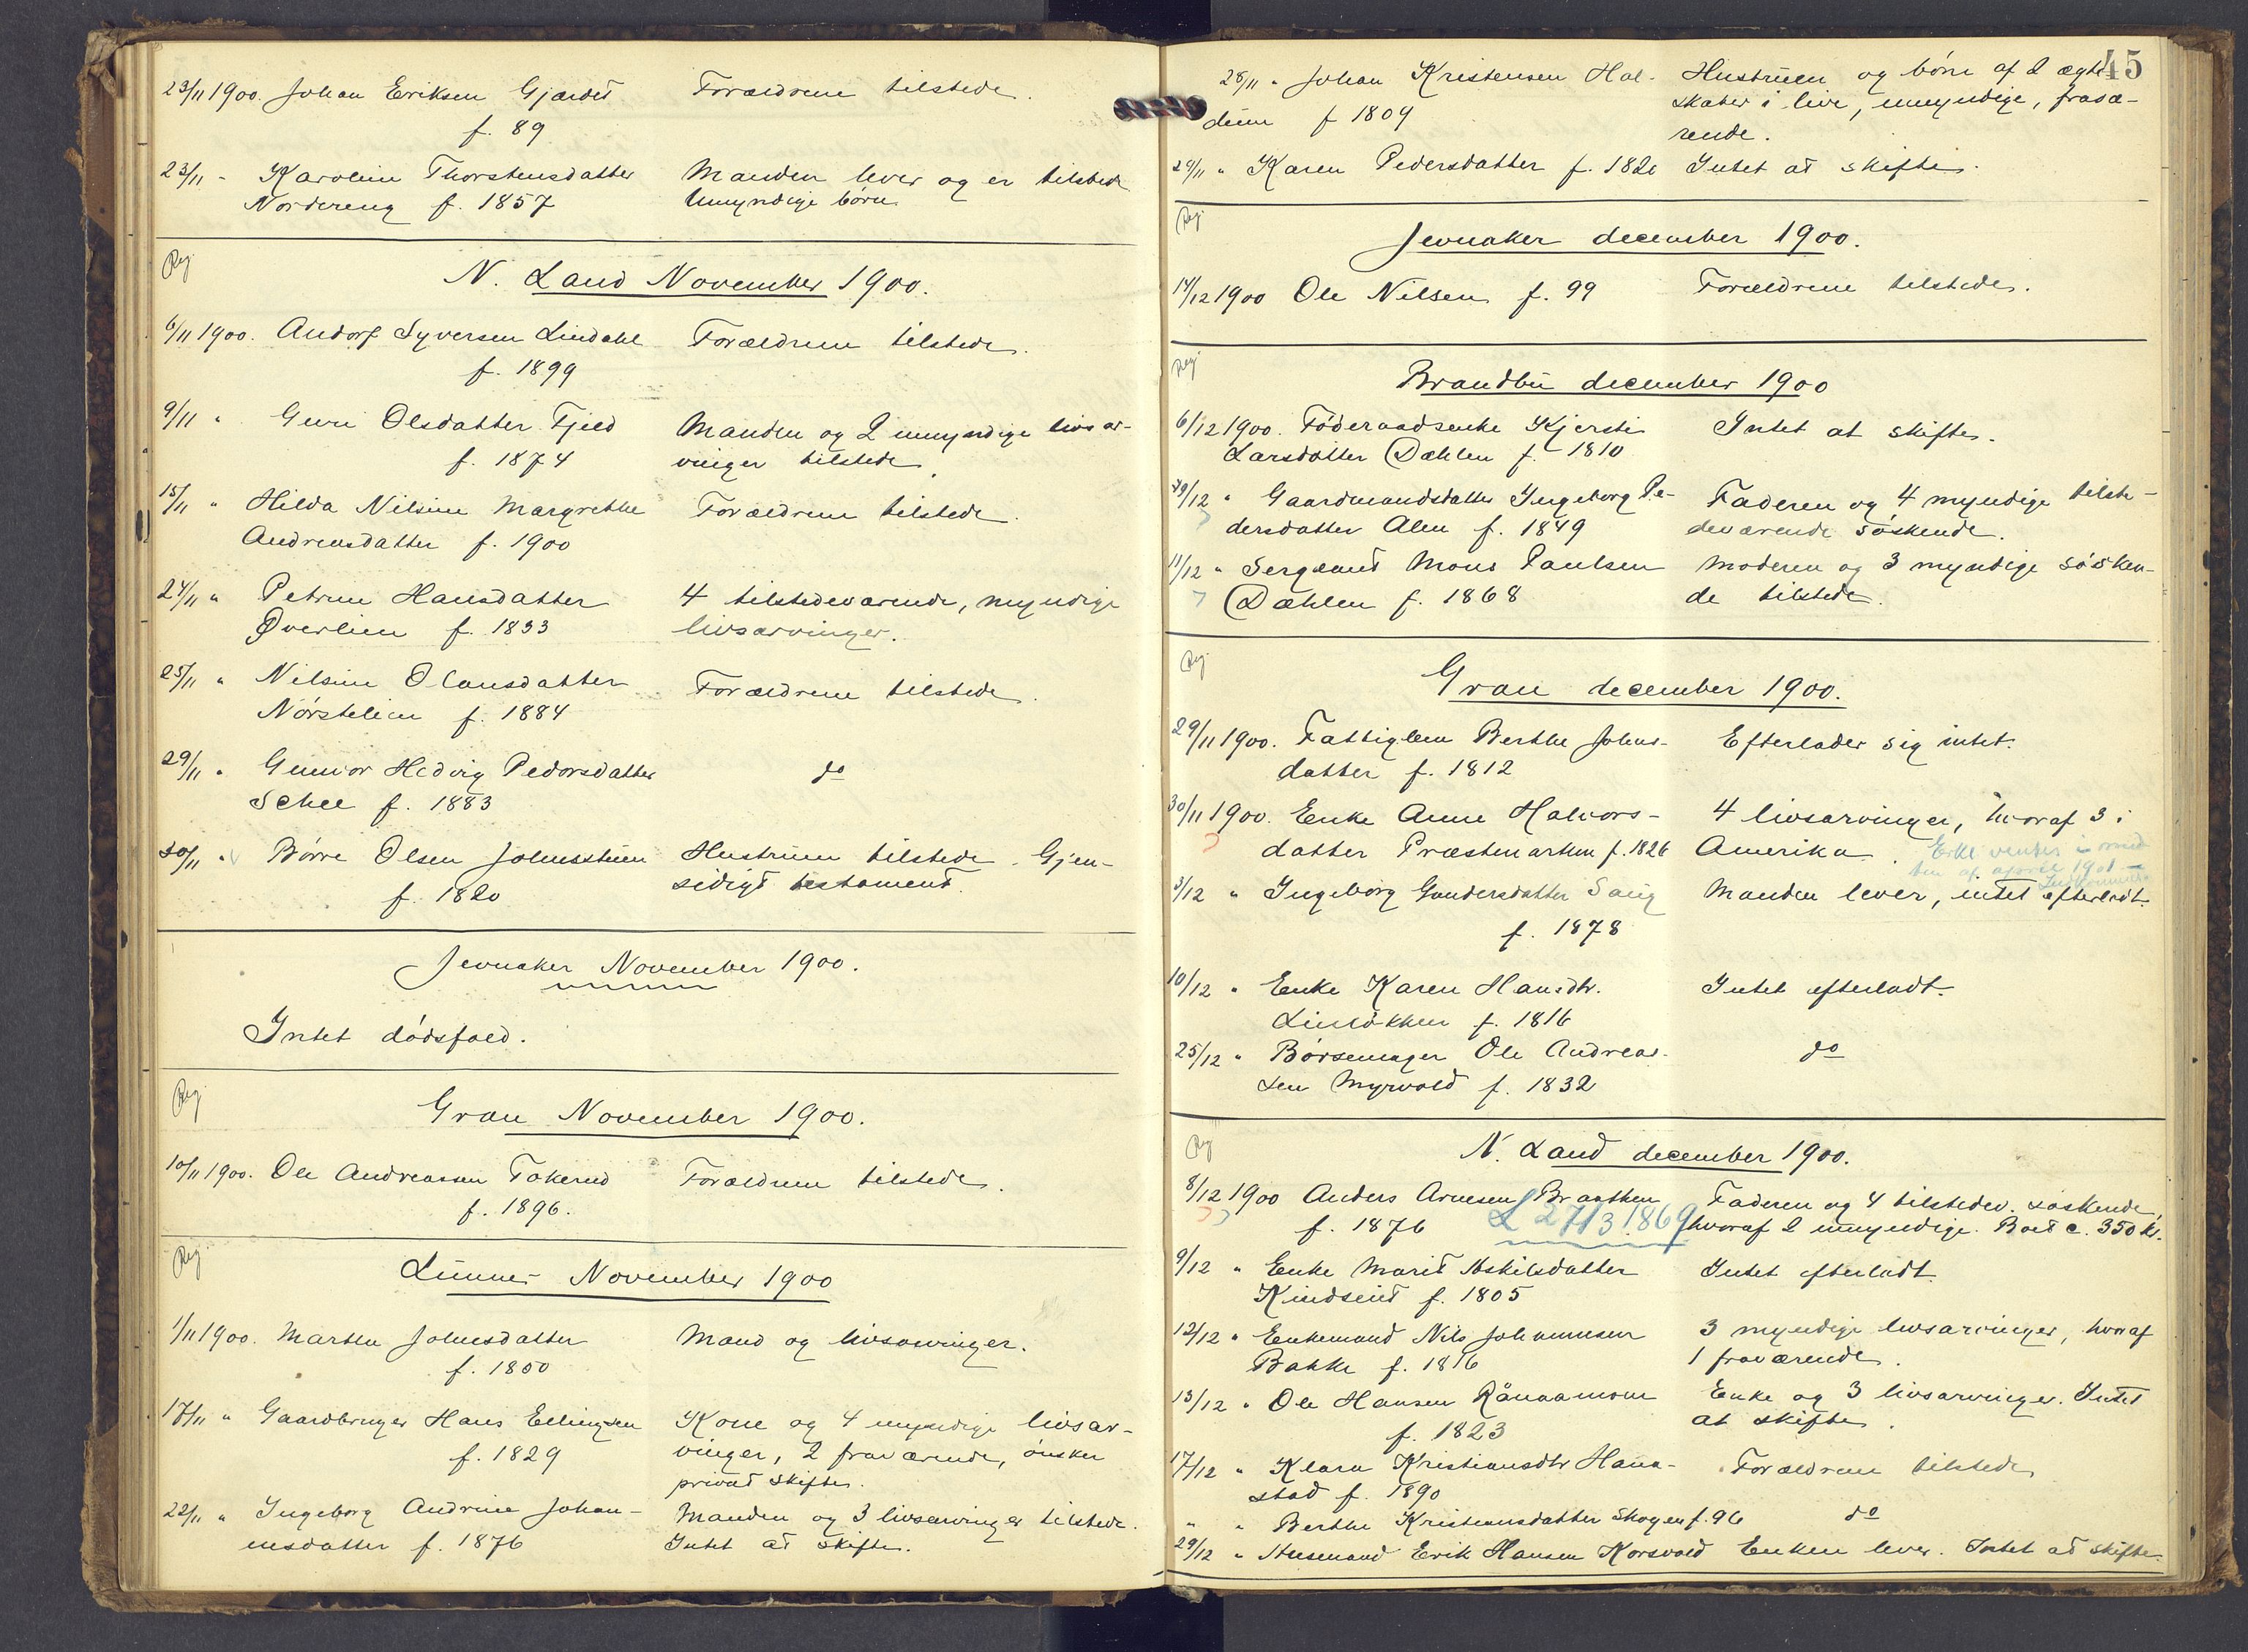 23/11 1900. Johan Eriksen Gjærdet Forældrene tilstede.
f. 89
23/11 - Karoline Thorstensdatter Manden lever og er tilstede
Nordereng f. 1857 Umyndige børn
Reg.
N. Land November 1900.
6/11 1900. Andorf Syversen Lindahl Forældrene tilstede.
f. 1899
9/11 " Guri Olsdatter Fjeld Manden og 2 umyndige livsar-
f. 1874 vinger tilstede.
15/11 " Hilda Nilsine Margrethe Forældrene tilstede.
Andreasdatter f. 1900
24/11 " Petrine Hansdatter 4 tilstedeværende, myndige
Øverlien f. 1833 livsarvinger.
25/11 " Nilsine Olausdatter Forældrene tilstede.
Nørstelien f. 1884
29/11 " Gunvor Hedvig Pedersdatter do
Schee f. 1883
30/11 " Børre Olsen Hustruen tilstede. Gjen-
f. 1820 sidigt testament.
Jevnaker November 1900.
Intet dødsfald.
Reg.
Gran November 1900.
10/11 1900. Ole Andreassen Tokerud Forældrene tilstede.
f. 1896.
Reg.
Lunner November 1900
1/11 1900. Marthe Johnsdatter Mand og livsarvinger.
f. 1850
17/11 " Gaardbruger Hans Ellingsen Kone og 4 myndige livsar-
f. 1829 vinger, 2 fraværende, ønsker
privat skifte.
22/11 " Ingeborg Andrine Johan- Manden og 3 livsarvinger tilstede.
nesdatter f. 1876 Intet at skifte.
45
28/11 " Johan Kristensen Hal- Hustruen og børn af 2 ægte
dum f 1809 skaber i live, umyndige, fravæ-
rende.
29/11 " Karen Pedersdatter f. 1820 Intet at skifte.
Reg.
Jevnaker december 1900.
14/12 1900 Ole Nilsen f. 99 Forældrene tilstede.
Reg.
Brandbu december 1900
6/12 1900. Føderaadsenke Kjersti Intet at skifte.
Larsdatter Dæhlen f. 1810
/12 " Gaardmandsdatter Ingeborg Pe- Faderen og 4 myndige tilste-
dersdatter Alm f. 1849 deværende søskende.
11/12 " Sergeant Mons Paulsen Moderen og 3 myndige søsken-
Dæhlen f. 1868 de tilstede.
Reg.
Gran december 1900.
29/11 1900. Fattiglem Berthe Johns- Efterlader sig intet.
datter f. 1812
30/11 1900. Enke Anne Halvors- 4 livsarvinger, hvoraf 3 i
datter Præstemarken f. 1826 Amerika.
3/12 " Ingeborg Gundersdatter Sang Manden lever, intet efterladt.
f. 1878
10/12 " Enke Karen Hansdtr. Intet efterladt.
Linløkken f. 1816
25/12 " Børsemager Ole Andreas- do
sen Myrvold f. 1832
Reg
N. Land december 1900.
8/12 1900 Anders Arnesen Braathen Faderen og 4 tilstedev. søskende,
f. 1876 L 27/3 1869 hvoraf 2 umyndige. Boet c. 350 kr.
9/12 " Enke Marit Askilsdatter Intet efterladt.
Kindseit f. 1805
12/12 " Enkemand Nils Johannesen 3 myndige livsarvinger, hvoraf
Bakke f. 1816 1 fraværende.
13/12 " Ole Hansen Enke og 3 livsarvinger. Intet
f. 1823 at skifte.
17/12 " Klara Kristiansdtr Haua- Forældrene tilstede
stad f. 1890
" " Berthe Kristiansdatter Skogen f. 96 do
29/12 " Husmand Erik Hansen Korsvold Enken lever. Intet at skifte.